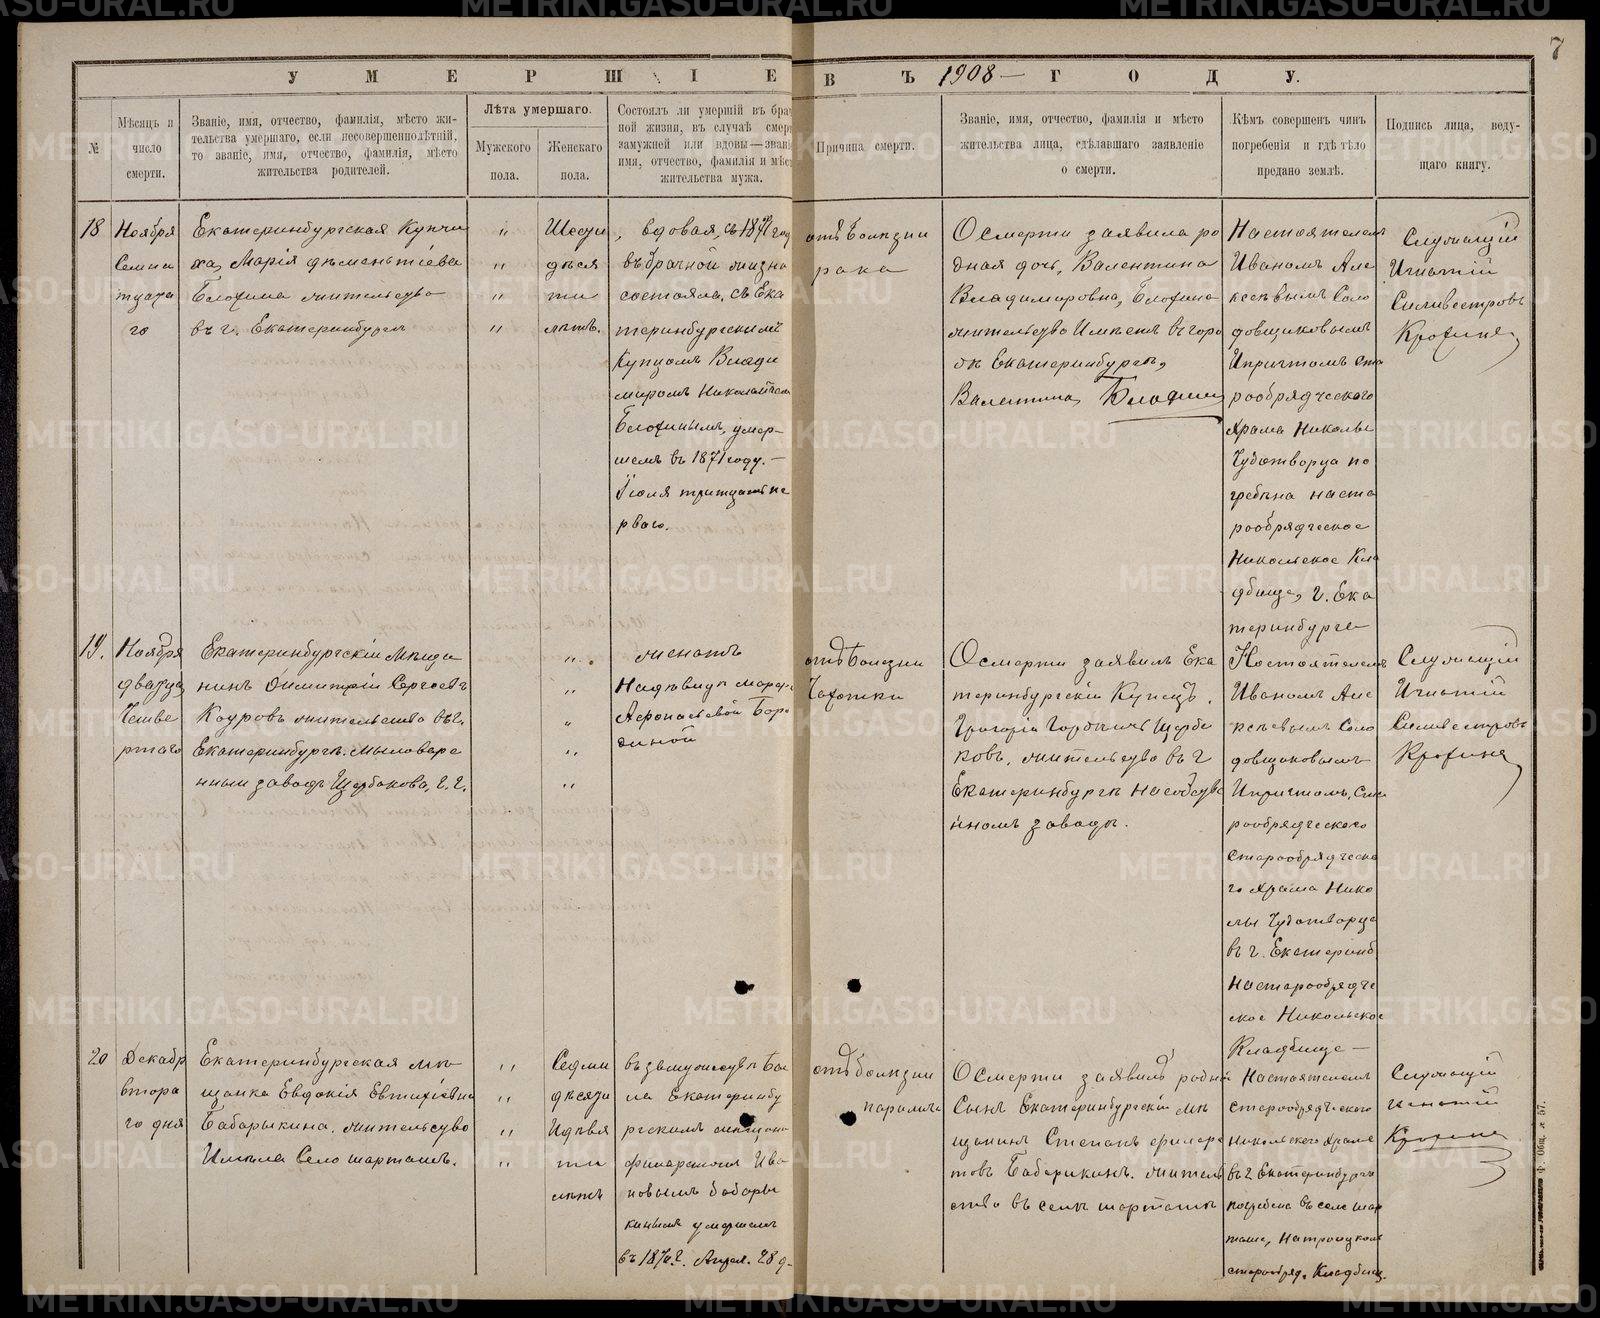 7
УМЕРШІЕ ВЪ 1908 ГОДУ.
№
Мѣсяцъ и
число
смерти.
Званіе, имя, отчество, фамилія, мѣсто жи-
тельства умершаго, если несовершеннолѣтній,
то званіе, имя, отчество, фамилія, мѣсто
жительства родителей.
Лѣта умершаго.
Мужского
пола.
Женскаго
пола.
Состоялъ ли умершій въ бра
ной жизни, въ случаѣ смер
замужней или вдовы—зван
имя, отчество, фамилія и мѣс
жительства мужа.
Причина смерти.
Званіе, имя, отчество, фамилія и мѣсто
жительства лица, сдѣлавшаго заявленіе
о смерти.
Кѣмъ совершенъ чинъ
погребенія и гдѣ тѣло
предано землѣ.
Подпись лица, веду-
щаго книгу.
18
Ноября
Семна
тцата
го
Екатеринбургская Купчи
ха, Марія дѣментіева
Блохина жительсуво
въ г. Екатеринбургъ
Шести
дѣся
ти
лѣтъ.
вдовая, съ 1871 год
въ брачной жизни
состояла, съ Ека
теринбургскимъ
Купцомъ Влади
миромъ Николаичем
Блохинымъ, умер-
шемъ въ 1871 году. —
Іюля тритцать пе
рваго.
отъ болизни
рака
О смерти заявила ро
дная дочь, Валентина
Владимировна, Блохина
жительсуво Имѣетъ въ горо
дѣ Екатеринбургѣ,
Валентина, Блохина
Настоятелемъ
Иваномъ Але
ксѣевымъ Соло
довщиковымъ
И притомъ ста
рообрядческаго
Храма Николы
Чудотворца по
гребѣна на ста
рообрядческое
Никольское Кла
дбище, г. Ека
теринбурге
Служащій
Игнатій
Силивестровъ
Крохинъ
19.
Ноября
дватца
Четве
ртаго
Екатеринбургскій Мѣща
нинъ Димитрій Сергѣевъ
Кауровъ жительство въ г.
Екатеринбургѣ. Мыловаре
нный заводъ Щербакова, Г. Г.
женатъ
Надѣвицѣ Марфѣ
Афонасьевой Боро
диной
отъ болезни
Чахотки
О смерти заявилъ Ека
теринбургскій Купецъ.
Григорій Гордѣичъ Щерба
ковъ, жительсуво въ г
Екатеринбургѣ на собсуве
нномъ заводѣ.
Настоятелемъ
Иваномъ Але
ксѣевымъ Соло
довщиковымъ
И притомъ, Ста
рообрядческого
Старообрядческа
го храма Нико
лы Чудотворца
въ г. Екатеринб.
На старообрядче
ское Никольское
Кладбище —
Служащій
Игнатій
Силивестровъ
Крохинъ
20
Декабр
втора
го дня
Екатеринбургская мѣ
щанка Евдокія Евтихіевна
Бабарыкина, жительсуво
Имѣла Село шарташъ.
Седми
дѣсяти
И дѣвя
ти
лѣтъ
въ замужесувѣ Бы
ла Екатеринбу
ргскимъ мещани
филаретомъ Ива
новымъ бабары
кинымъ умершемъ
въ 187 г. Апрел. 28 д-
отъ болизни
паралича
О смерти заявилъ родной
Сынъ Екатеринбургскій мѣ
щанинъ Степанъ филаре
товъ Бабарикинъ. жительс
ство въ селѣ шарташѣ
Настоятелемъ
Старообрядческаго
Никольского храма
въ г Екатеринбурге
погребена въ селе шар
таше, На троицкомъ
старообряд. Кладбищ.
Служащій
игнатій
Крохинъ